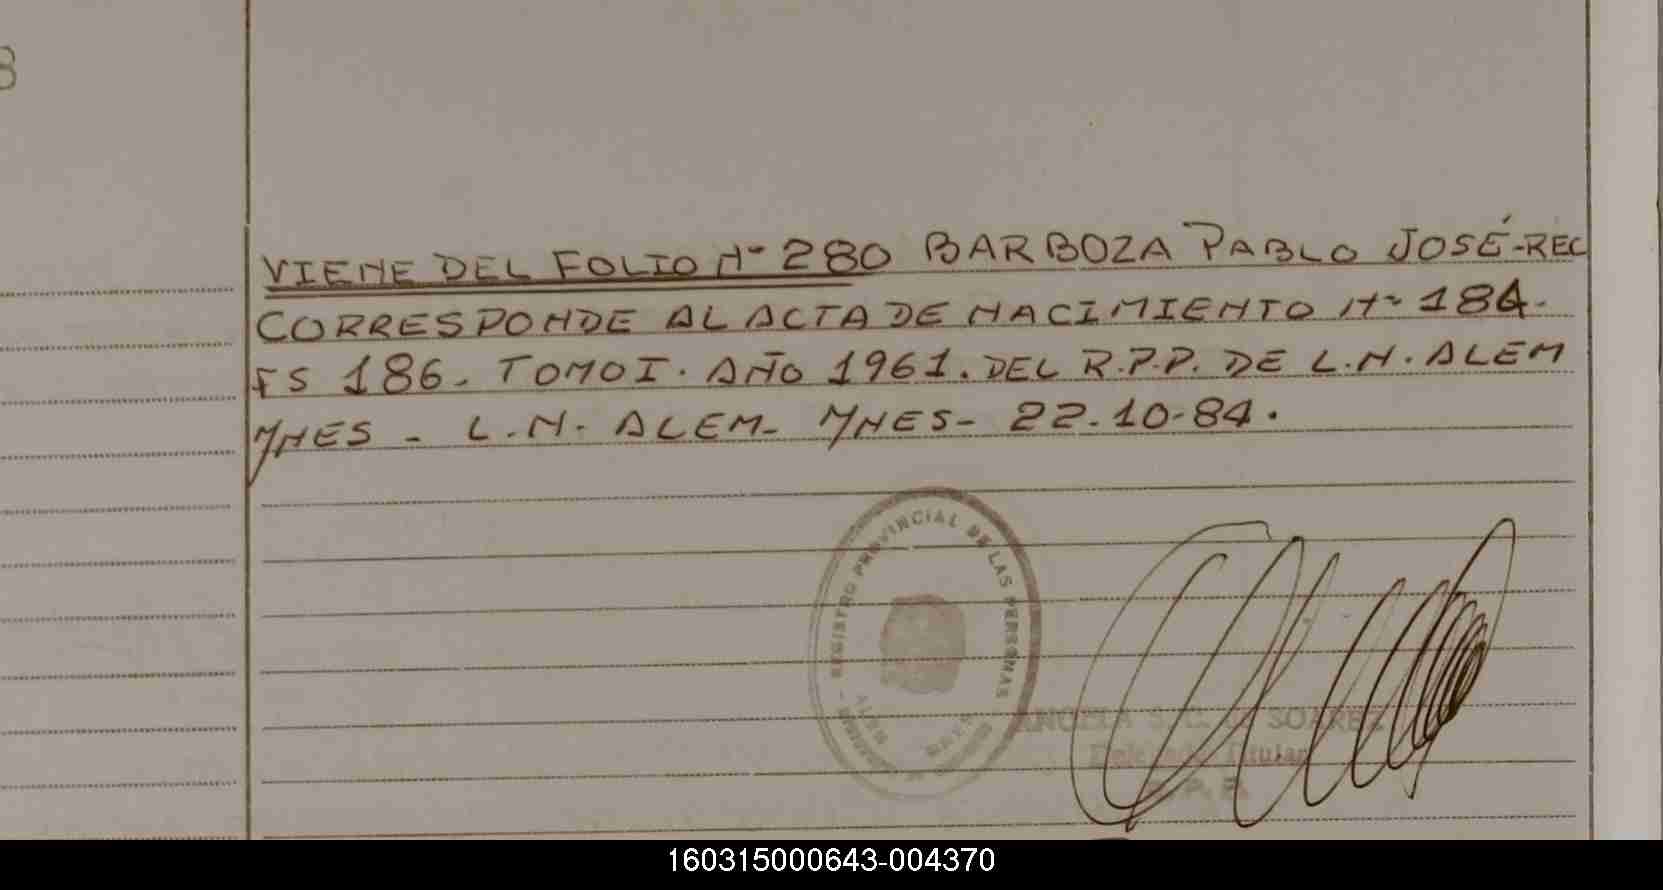 VIENE DEL FOLIO Nº 280 BARBOZA PABLO JOSÉ-REC
CORRESPONDE AL ACTA DE NACIMIENTO Nº 184.
FS 186. TOMO I. AÑO 1961. DEL R.P.P. DE L.N. ALEM
MNES - L.N. ALEM - MNES - 22.10-84.
REGISTRO PROVINCIAL DE LAS PERSONAS
ALEM
ANGELA S. C. de SOAREZ
Delegado Titular
R. P. P.
160315000643-004370